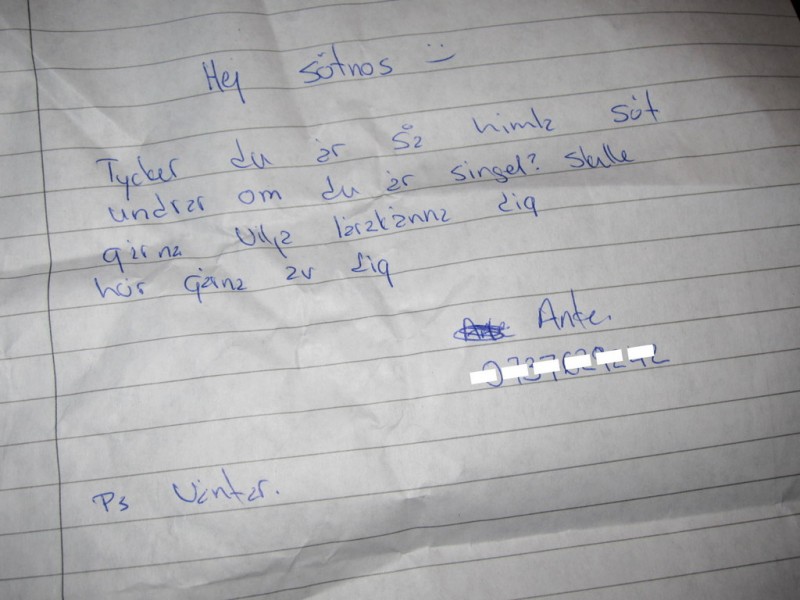 Hej sötnos :)
Tycker du är så himla söt
undrar om du är singel? Skulle
gärna vilja lärakänna dig
hör gärna av dig
Ante.
Ps Väntar.